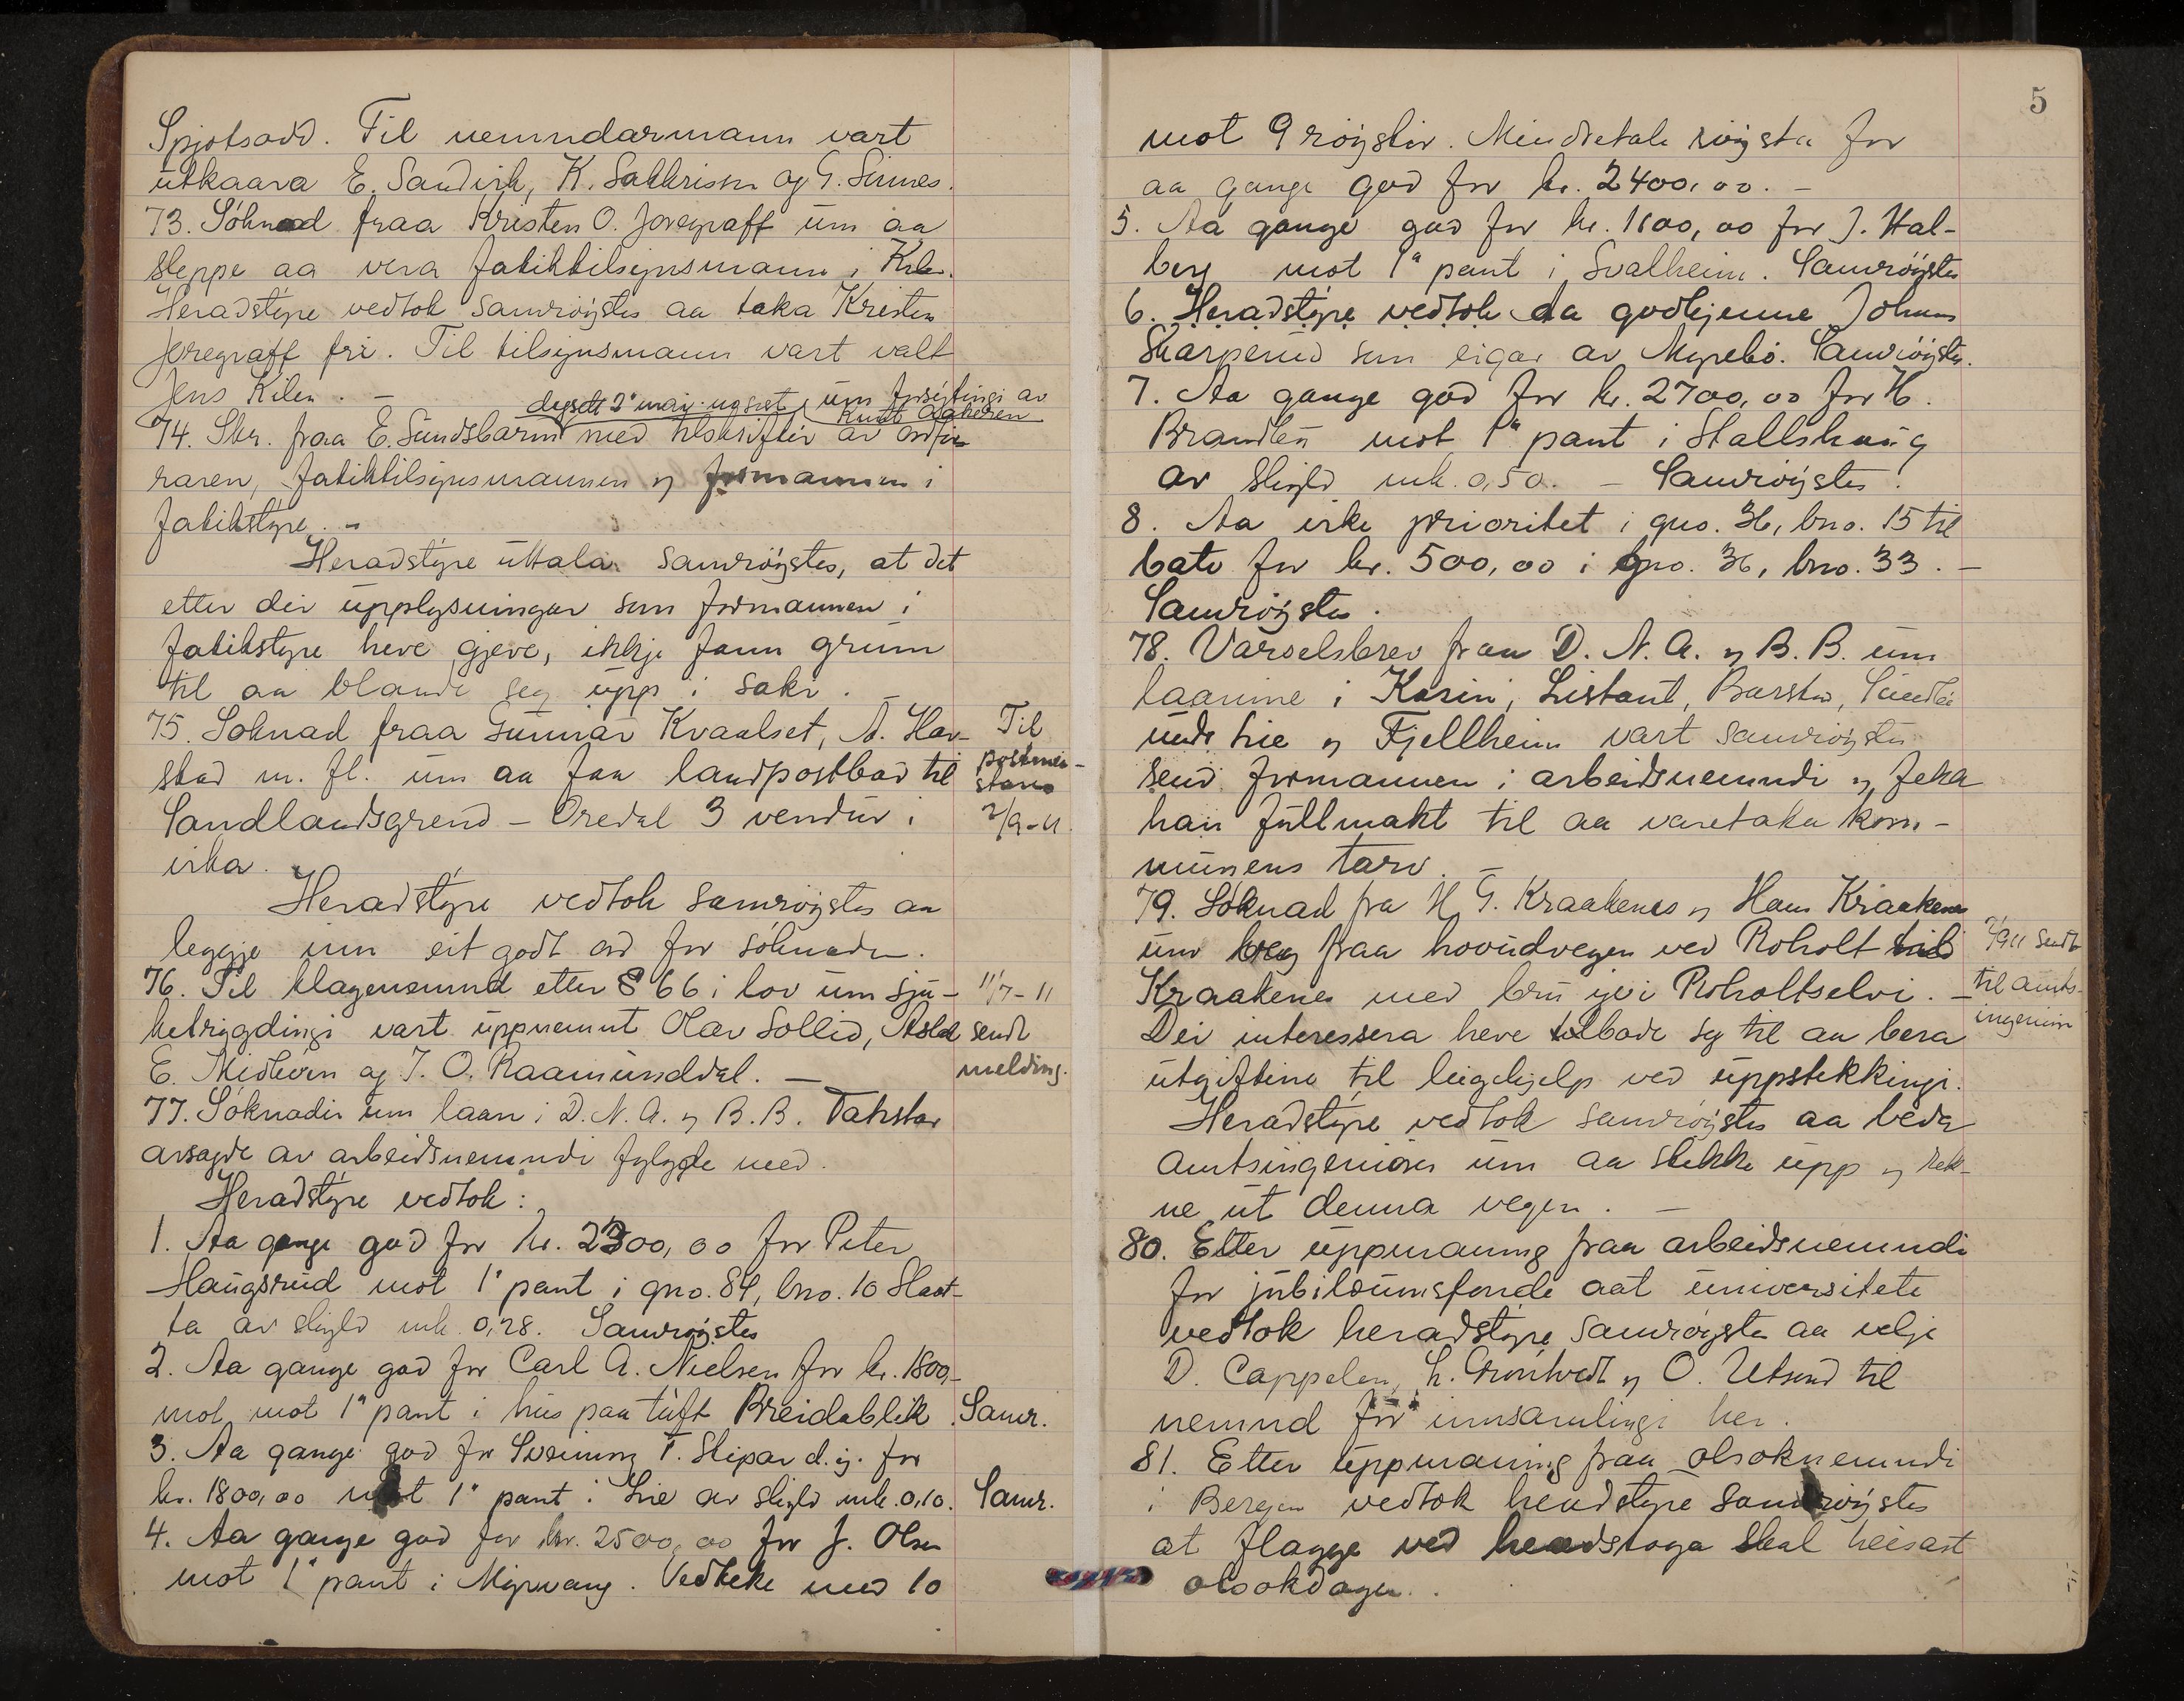 Spjotsodd. Til nemndarmann vart
utkaara E. Sandvik, K. Salthrison og G. Sinnes.
73. Söknad fraa Kristen O. Joregraff um aa
sleppe aa vera fatiktilsynsmann i Kilen.
Heradstyre vedtok samröystes aa taka Kristen
Joregraff fri. Til tilsynsmann vart valt
Jens Kilen. –
dagsett 2' mai ugset, um forsytingi av
Knut Aakeren
74. Skr. fraa E. Sundsbarm med tilskrifter av ordfö-
raren, fatiktilsynsmannen og formannen i
fatikstyre. –
Heradstyre uttalar samröystes, at det
etter dei upplysningar som formannen i
fatikstyre heve gjeve, ikkje fann grunn
til aa blande seg upp i saki. –
75. Söknad fraa Gunnar Kvaalset, A. Hav-
stad m. fl. um aa faa landpostbod til
Sandlandsgrend – Öredal 3 vendur i
vika.
Til
postmei-
staren
2/9-11.
Heradstyre vedtok samröystes aa
leggje inn eit godt ord for söknaden.
76. Til klagenemnd etter § 66 i lov um sju-
ketrygdingi vart uppnemnt Olav Sollid, Aslak
E. Midtveen og T. O. Raamunddal. –
11/7-11
sendt
melding.
77. Söknadir um laan i D. N. A. og B. B. Takstar
avsagde av arbeidsnemndi fylgde med.
Heradstyre vedtok:
1. Aa gange god for kr. 2300,00 for Peter
Haugsrud mot 1' pant i gno. 84, bno. 10 Slaat-
ta av skyld mk. 0,28. Samröystes
2. Aa gange god for Carl A. Nielsen for kr. 1800,-
mot mot 1" pant i hus paa tuft Breidablik. Samr.
3. Aa gange god for Sveinung T. Stipar d.y. for
kr. 1800,00 mot 1" pant i Lie av skyld mk. 0,10. Samr.
4. Aa gange god for kr. 2500,00 for J. Olsen
mot 1" pant i Myrvang. Vedteke med 10
5
mot 9 röyster. Mindretale röysta for
aa gange god for kr. 2400,00. –
5. Aa gange god for kr. 1800,00 for J. Hal-
berg mot 1" pant i Svalheim. Samröystes
6. Heradstyre vedtok da godkjenne Johann
Skarperud som eigar av Myrebö. Samröystes.
7. Aa gange god for kr. 2700,00 for H.
Brandlen mot 1" pant i Stallshaug
av skyld mk. 0,50. – Samröystes.
8. Aa vike prioritet i gno. 36, bno. 15 til
bate for kr. 500,00 i gno. 36, bno. 33. –
Samröystes.
78. Varselsbrev fraa D. N. A. og B. B. um
laanine i Karin, Listaut, Barstad, Sundlie
undr lie og Fjellheim vart samröystes
send formannen i arbeidsnemndi og feka
han fullmakt til aa varetaka kom-
munens tarv. –
79. Söknad fra H. G. Kraakenes og Hans Kraakenes
um veg fraa hovudvegen ved Roholt til
Kraakenes med bru yvi Roholtselvi. –
Dei interessera heve tilbode seg til aa bera
utgiftine til leigehjelp ved uppstekkingi.
2/9 11 sendt
til amts-
ingeniør
Heradstyre vedtok samröystes aa beda
amtsingeniøren um aa stikke upp og rek-
ne ut denna vegen. –
80. Etter uppmaning fraa arbeidsnemndi
for jubilæumsfonde aat universitete
vedtok heradstyre samröystes aa velje
D. Cappelen, H. Grönhvedt og O. Utsund til
nemnd for innsamlingi her.
81. Etter uppmaning fraa olsoknemndi
i Bergen vedtok heradstyre samröystes
at flagge ved heradstoga skal heisast
olsokdagen.